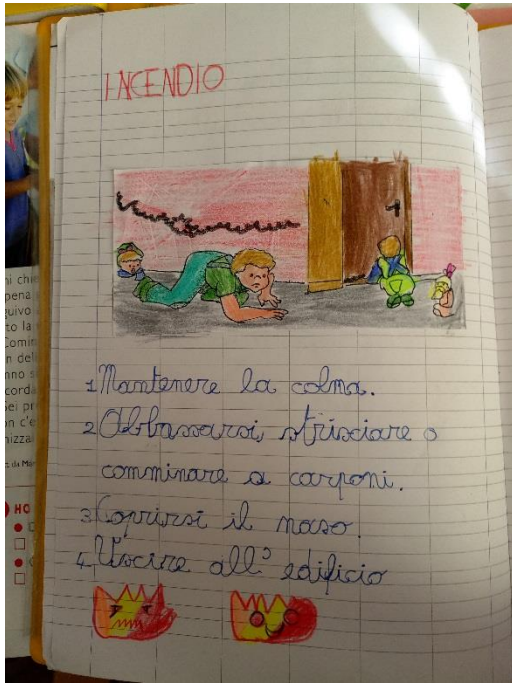 INCENDIO
1 Mantenere la calma.
2 Abbassarsi, strisciare o
camminare a carponi.
3 Coprirsi il naso.
4 Uscire all' edificio
HO